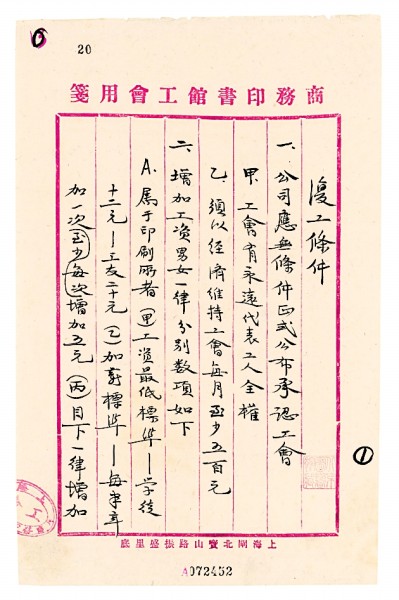 20
商務印書館工會用箋
復工條件
一、公司應無條件正式公布承認工會
甲、工會有永遠代表工人全權
乙、須以經濟維持工會每月至少五百元
二、增加工資男女一律分別數項如下
A、属于印刷所者(甲)工资最低標準—学徒
十二元—工友二十元(乙)加薪標準—每半年
加一次至少每次增加五元(丙)目下一律增加
①
上海閘北寶山路振盛里底
A072452